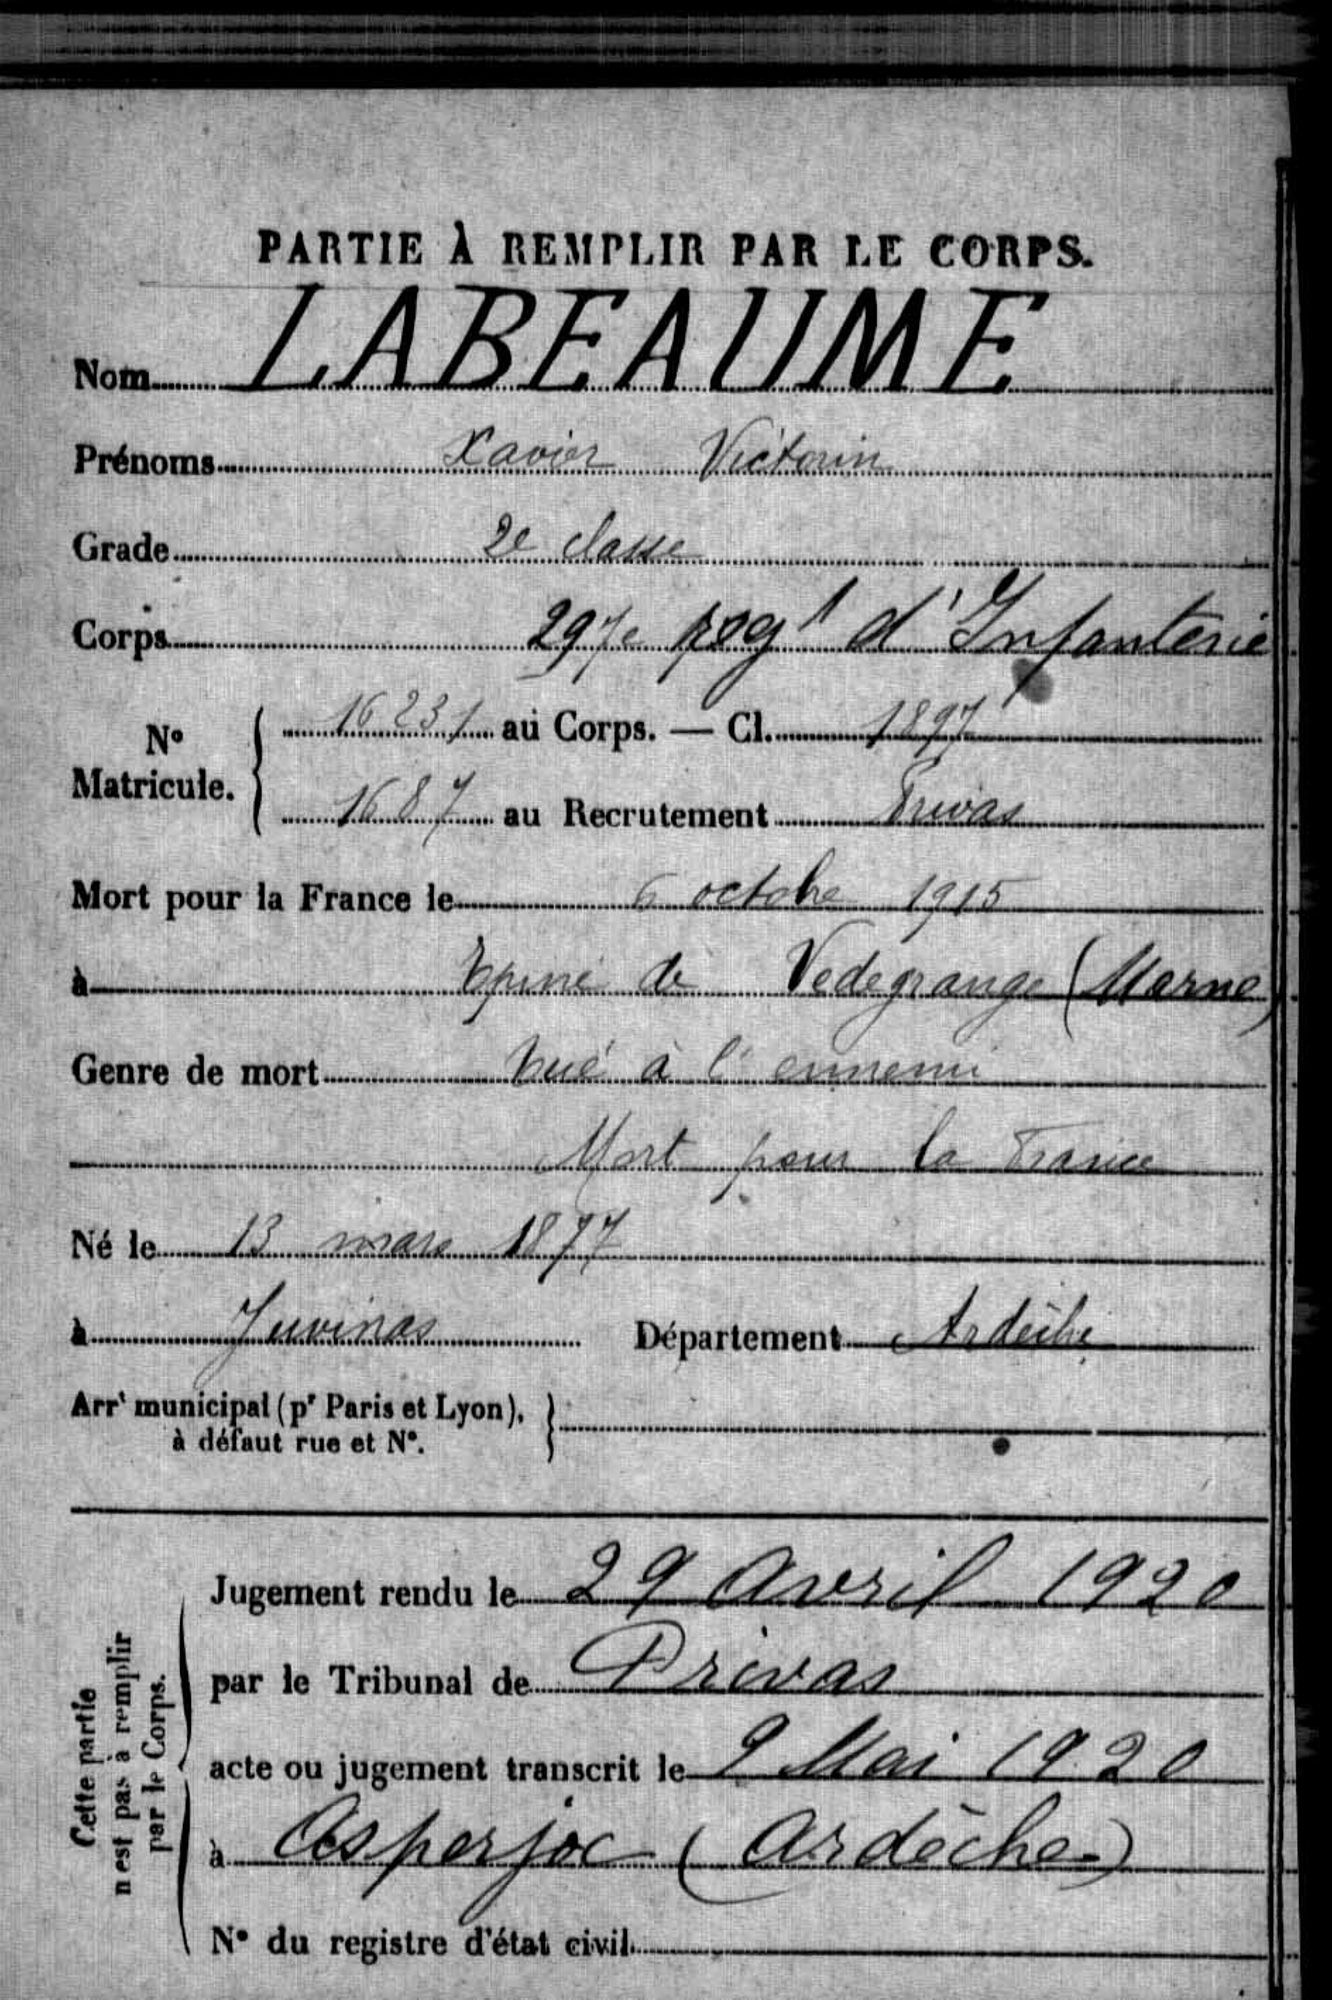 PARTIE À REMPLIR PAR LE CORPS.
Nom LABEAUME
Prénoms Xavier Victorin
Grade 2e classe
Corps 297e regt d'Infanterie
No Matricule. { 16231 au Corps. — Cl. 1897
1687 au Recrutement Privas
Mort pour la France le 6 octobre 1915
à Epine de Vedegrange (Marne)
Genre de mort tué à l'ennemi
Mort pour la France
Né le 13 mars 1877
à Juvinas Département Ardèche
Arrt municipal (pr Paris et Lyon), }
à défaut rue et No.
Cette partie
n'est pas à remplir
par le Corps.
Jugement rendu le 29 Avril 1920
par le Tribunal de Privas
acte ou jugement transcrit le 9 Mai 1920
à Asperjoc (Ardèche)
No du registre d'état civil